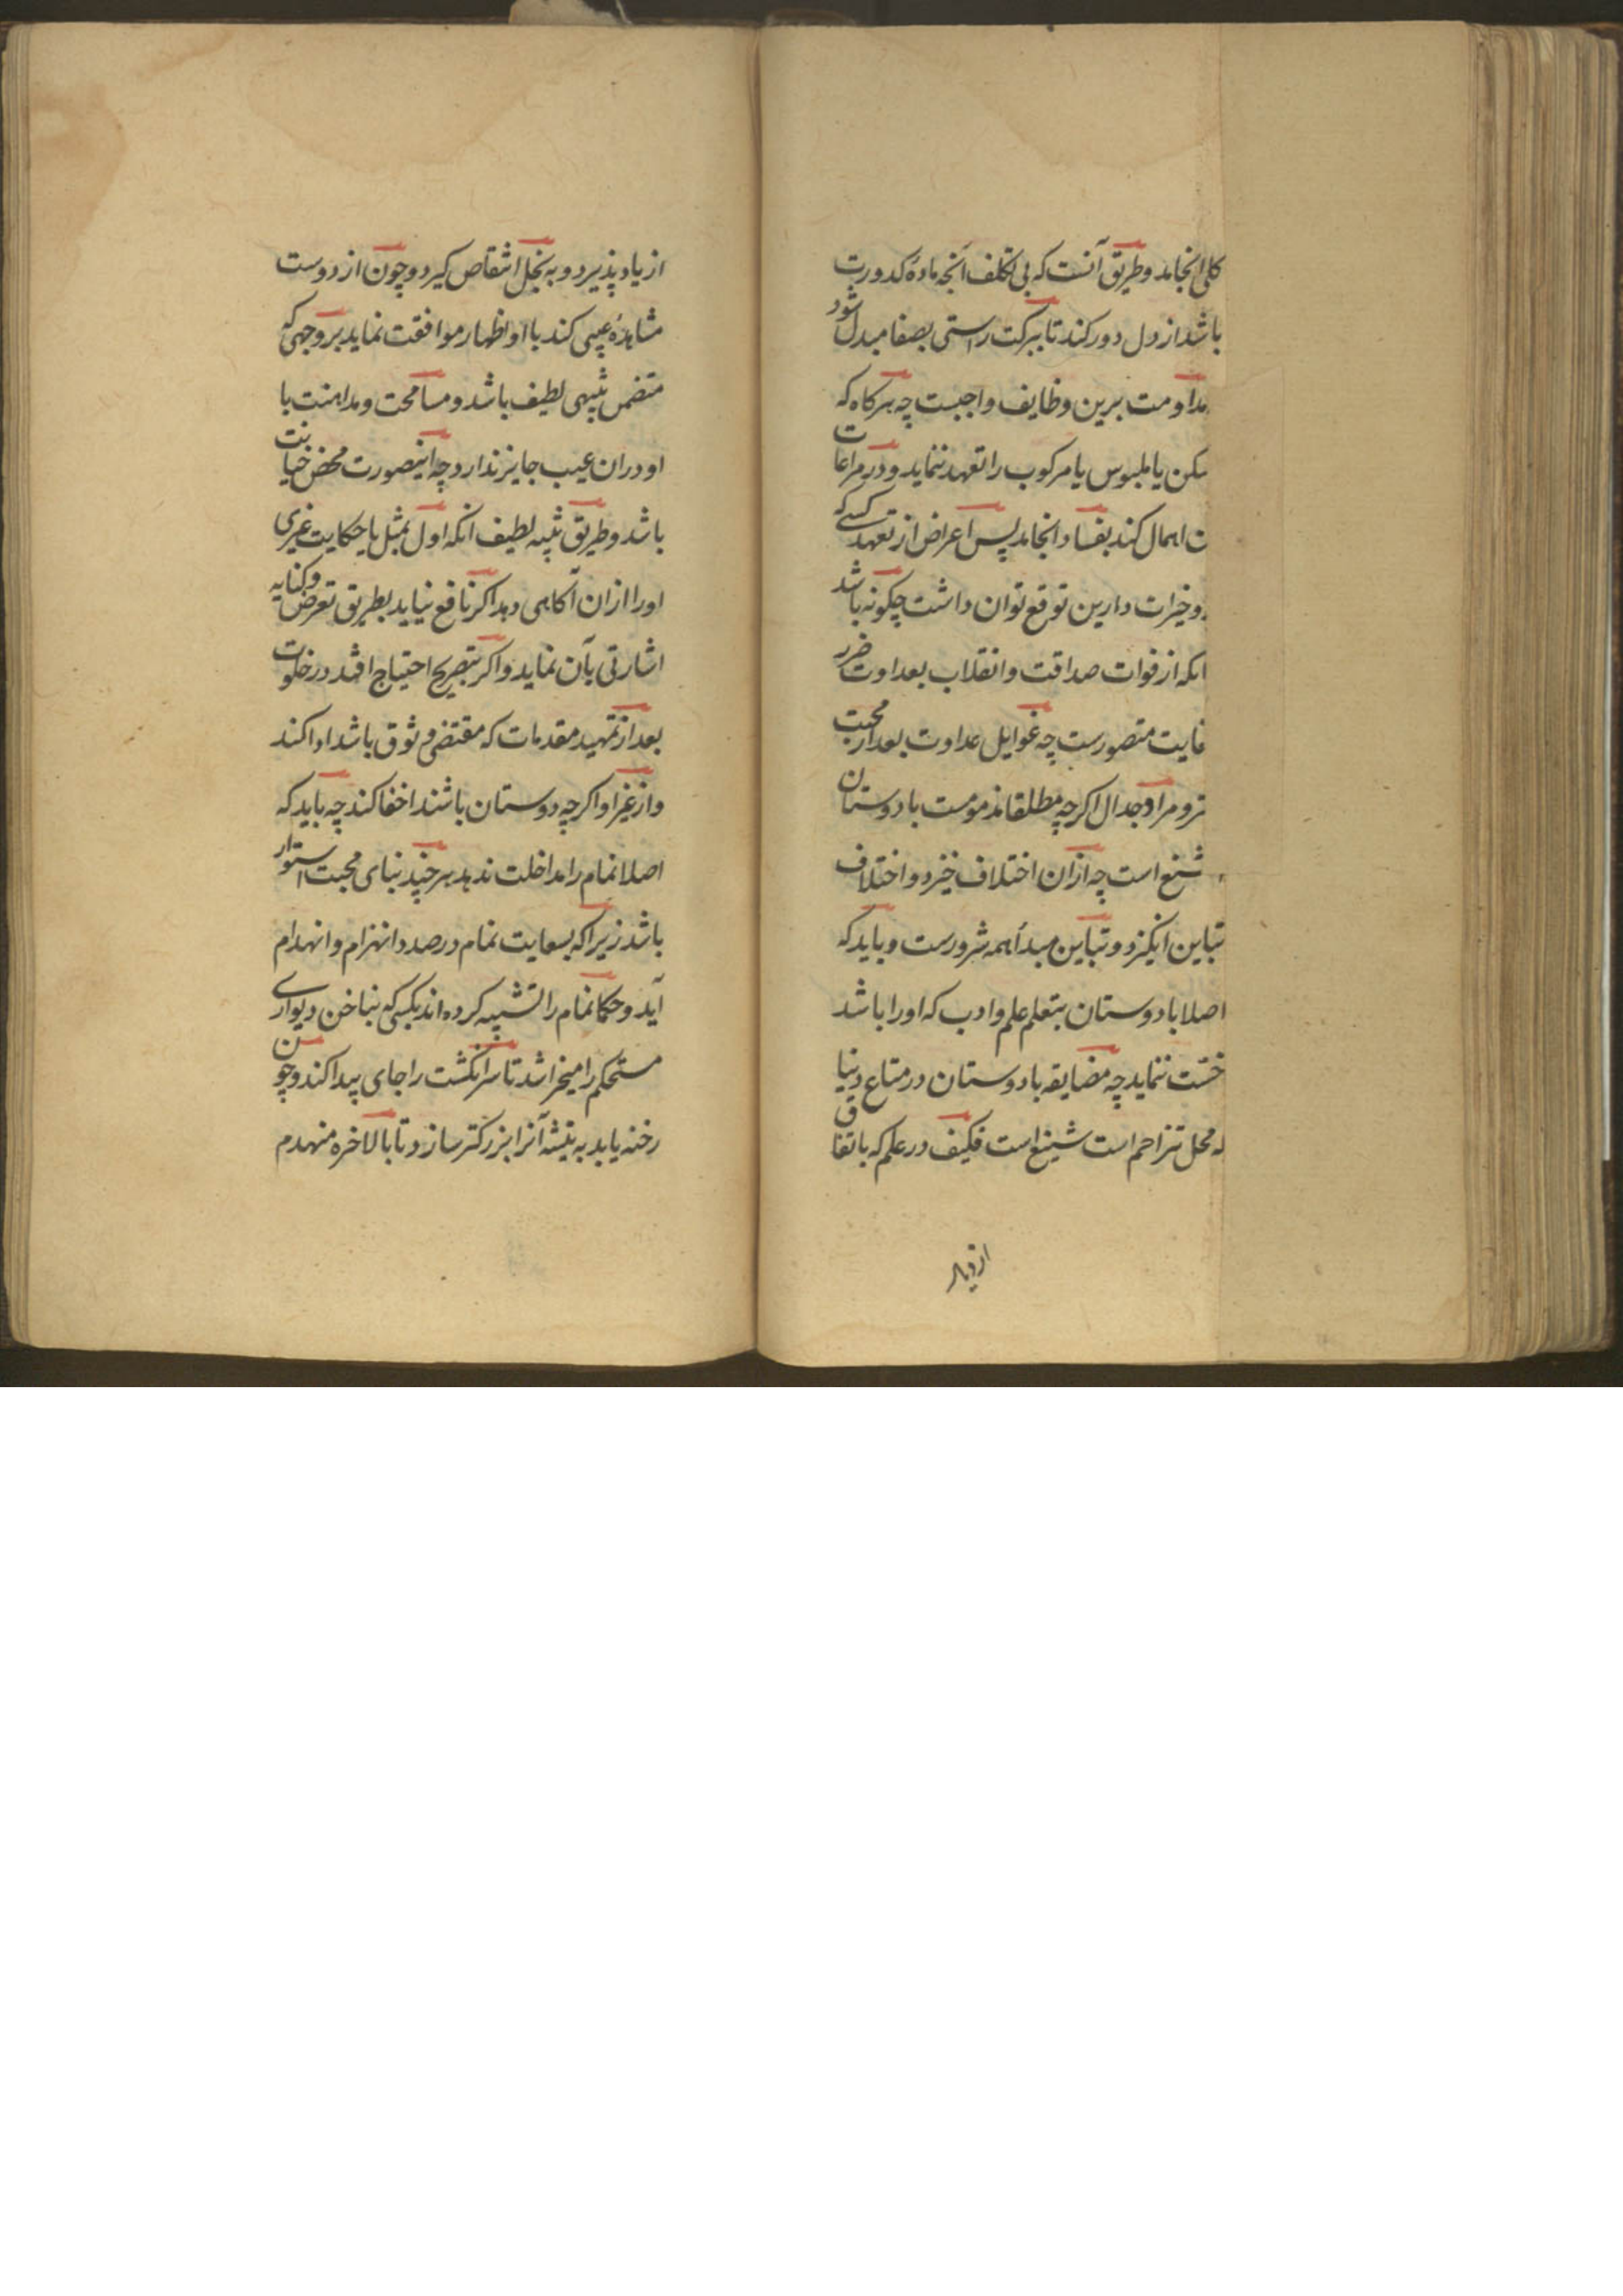 کلی انجامد و طریق آنست که بی تکلف آنچه ماده کدورت
باشد از دل دور کند تا ببرکت راستی بصفا مبدل شود
مداومت برین وظایف واجبست چه هرکاه که
مسکن یا ملبوس یا مرکوب را تعهد ننماید و در مراعات
ن اهمال کند بفساد انجامد پس اعراض از تعهد کسی که
و خیرات دارین توقع توان داشت چکونه باشد
انکه از فوات صداقت و انقلاب بعداوت ضرر
غایت متصورست چه غوایل عداوت بعد از محبت
تر و مرا و جدال اکرچه مطلقا مذمومست با دوستان
شنیع است چه ازان اختلاف خیزد و اختلاف
تباین انکیزد و تباین مبدأ همه شرورست و باید که
اصلا با دوستان بتعلم علم و ادب که او را باشد
خست ننماید چه مضایقه با دوستان در متاع دنیا
که محل تزاحم است شنیع است فکیف در علم که باتفاق
ازدیاد
ازدیاد پذیرد و به بخل انتقاص کیرد و چون از دوست
مشاهده عیبی کند با او اظهار موافقت نماید بر وجهی که
متضمن تنبیهی لطیف باشد و مسامحت و مداهنت با
او دران عیب جایز ندارد چه اینصورت محض خیانت
باشد و طریق تنبیه لطیف انکه اول بمثل یا حکایت غیری
او را ازان آکاهی دهد اکر نافع نیاید بطریق تعرض و کنایه
اشارتی بآن نماید و اکر بتصریح احتیاج افتد در خلوت
بعد از تمهید مقدمات که مقتضی وثوق باشد ادا کند
و از غیر او اکرچه دوستان باشند اخفا کند چه باید که
اصلا نمام را مداخلت ندهد هر چند بنای محبت استوار
باشد زیرا که بسعایت نمام در صدد انهزام و انهدام
آید و حکما نمام را تشبیه کرده اند بکسی که بناخن دیواری
مستحکم را میخراشد تا سر انکشت را جای پیدا کند و چون
رخنه یابد به تیشه آنرا بزرکتر سازد تا بالاخره منهدم